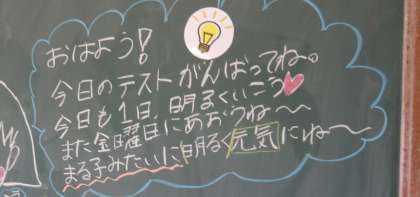 おはよう!
今日のテストがんばってね。
今日も1日、明まくいこう♥
また金曜日にあおうね〜
まる子みたいに明るく元気にね〜